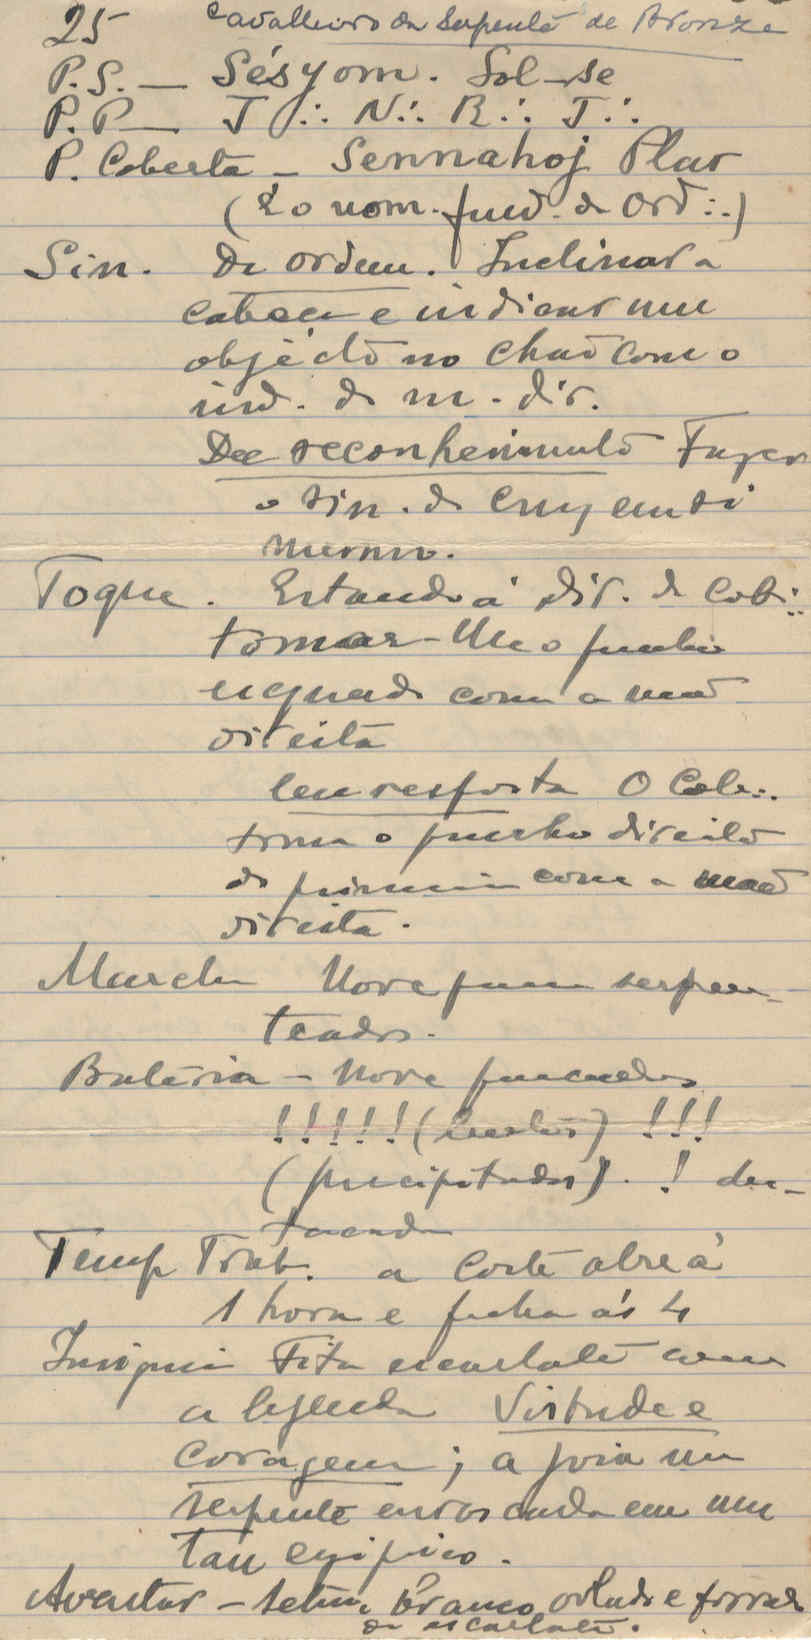 25 Cavalleiro da Serpente de Bronze
P.S. — Sésyom. Sol-se
P.P — J ∴ N ∴ R ∴ J ∴
P. Coberta — Sennahoj Plar
(É o nom. fund. da Ord ∴)
Sin. De ordem. Inclinar a
cabeça e indicar um
objécto no chão com o
ind. da m. dir.
De reconhecimento Fazer
o sin. da cruz em si
mesmo.
Toque. Estando á dir. do Cob ∴
tomar-lhe o punho
esquerdo com a mão
direita
Em resposta O Cob ∴
toma o punho direito
do primeiro com a mão
direita.
Marcha Nove passos serpen-
teados.
Bateria — Nove pancadas
!!!!! (lentas) !!!
(precipitadas). ! des-
tacada
Temp Trab. a Corte abre á
1 hora e fecha ás 4
Insignia Fita escarlate com
a legenda Virtude e
Coragem; a joia um
serpente enroscada em um
tau egipcio.
Avental — Setim branco orlado e forrado
de escarlate.